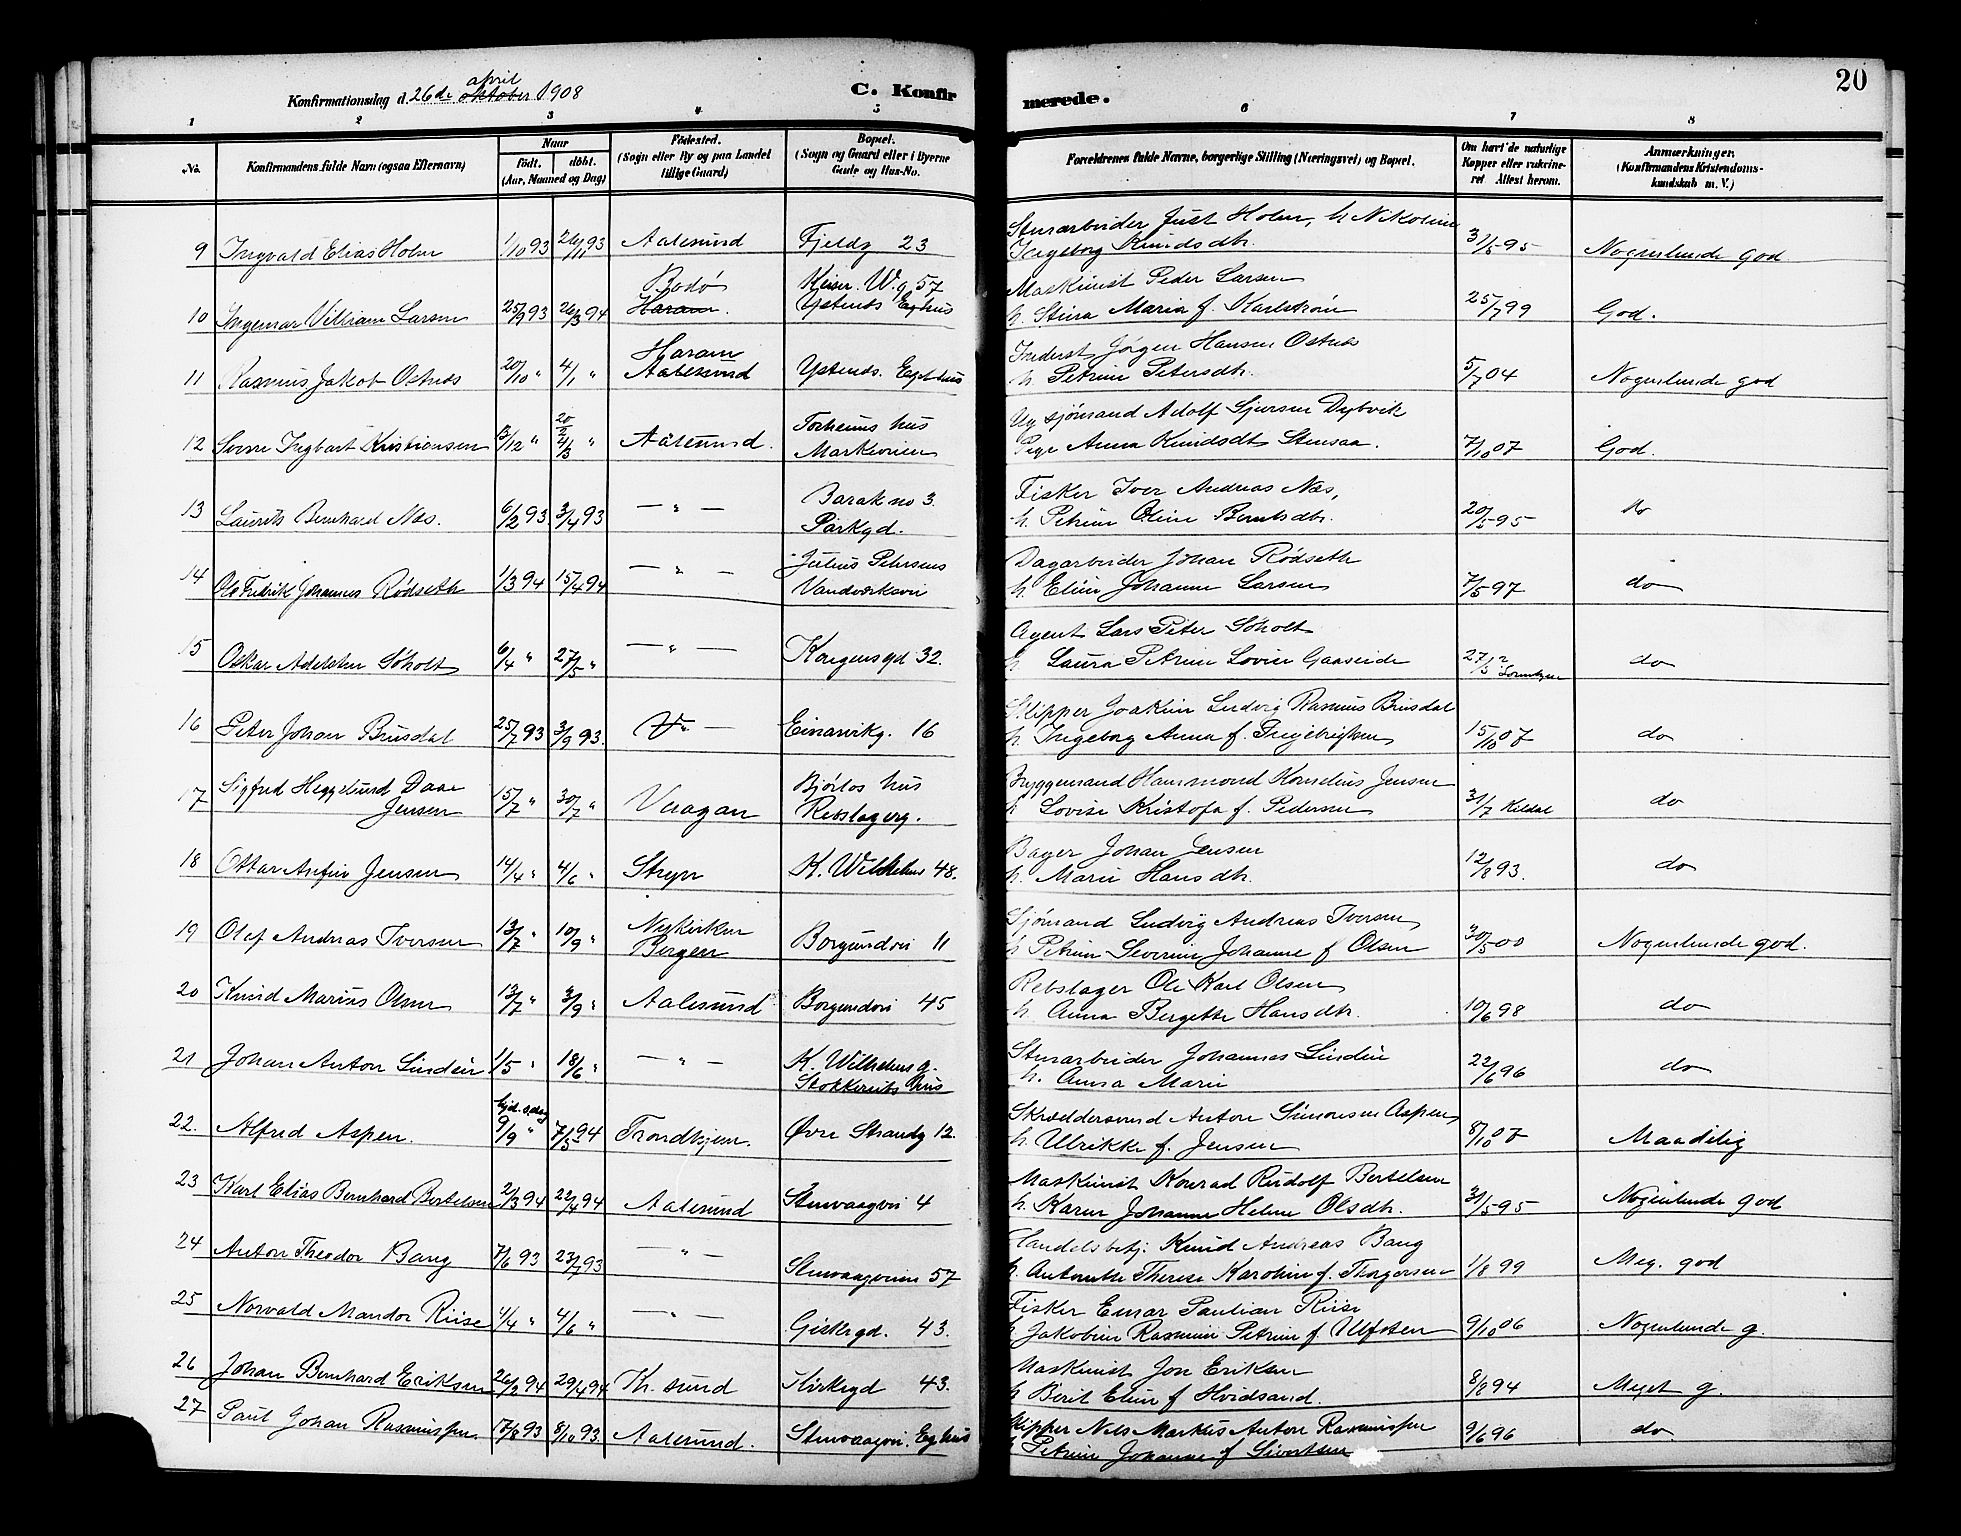 20
april
Konfirmationsdag d. 26de oktober 1908
C. Konfirmerede.
1 2 3 4 5 6 7 8
No. Konfirmandens fulde Navn (ogsaa Efternavn) Naar født. døbt. (Aar, Maaned og Dag) Fødested. (Sogn eller By og paa Landet tillige Gaard) Bopæl. (Sogn og Gaard eller i Byerne Gade og Hus-No. Forældrenes fulde Navne, borgerlige Stilling (Næringsvei) og Bopæl. Om havt de naturlige Kopper eller vakcineret Attest herom. Anmærkninger. (Konfirmandens Kristendomskundskab m. V.)
Just Holm, h. Nikoline
9 Ingvald Elias Holm 1/10 93 26/11 93 Aalesund Fjeldg 23 Ingeborg Knudsdtr. 31/5 95 Nogenlunde god
Bodø Keiser. W. g. 57 Maskinist Peder Larsen
10 Ingemar Villiam Larsen 25/9 93 26/3 94 Haram. Ystenes Eg hus h. Maria f. Karlstrøm 25/7 99 God.
Haram Inderst Jørgen Hansen Ostnes
11 Rasmus Jakob Ostnes 20/10 " 4/1 " Aalesund Ystenes. Eget hus h. Petrine Petersdtr. 5/7 04 Nogenlunde god
Ug sjømand Adolf Sjursen Dybvik
12 Sverre Ingbart Kristiansen /12 " " Aalesund. Markveien Pige Anna Knudsdt Stensaa. 7/10 07 God.
Barak no 3 Fisker Iver Andreas Næs,
13 Laurits Bernhard Næs. 6/2 93 3/4 93 — " — Parkgd. h. Petrine Oline Berntsdtr. 20/5 95 do
Julius Petersens Dagarbeider Johan Rødseth
14 Ole Fredrik Johannes Rødseth 1/3 94 15/4 94 — " — Vandværksvei h. Eline Johanne Larsen 7/5 97 do
Agent Lars Peter Søholt
15 Oskar Adelsten Søholt 6/4 " 27/5 " — " — Kongensgd 32. h. Laura Petrine Lovise Gaaseide 27/3 do
Skipper Joakim Ludvig Rasmus Brusdal
16 Peter Johan Brusdal 25/7 93 3/9 93. " — Einarvikg. 16 h. Ingeborg Anna f. Ingebrigtsen 15/10 07 do
Sigfred Heggelund Daae Bjørlos hus Bryggemand Hansmond Kornelius Jensen
17 Jensen 15/7 " 30/7 " Vaagan Rebslagerg. h Lovise Kristofa f. Pedersen 31/7 Kildal do
Bager Johan Jensen
18 Ottar Anfin Jensen 14/4 " 4/6 " Stryn K. Wilhelms 48. h. Marie Hansdtr. 12/8 93. do
Nykirken Sjømand Ludvig Andreas Iversen
19 Olef Andreas Iversen 13/7 " 10/9 " Bergen Borgundvei 11 h Petrine Severine Johanne f Olsen 30/5 00 Nogenlunde god.
Rebslager Ole Karl Olsen
20 Knud Marius Olsen 13/7 " 3/9 " Aalesund Borgundvei 45 h. Anna Bergette Hansdtr. 10/6 98 do
K. Wilhelms g. Johannes Lindein
21 Johan Anton Lindein 1/5 " 18/6 " — " — Stokkenets hus h. Anna Marie 22/6 96 do
hjd. d. dag Skræddersvend Anton Simonsen Aspen
22. Alfred Aspen. 9/9 " 7/5 94 Trondhjem. Øvre Strandg 12. h. Ulrikke f. Jensen 8/10 07 Maadelig
Maskinist Konrad Rudolf Bertelsen
23 Karl Elias Bernhard Bertelsen 2/3 94 22/4 94 Aalesund Stenvaagvei 4 h. Karen Johanne Helene Olsdtr. 31/5 95 Nogenlunde god
Handelsbetj. Knud Andreas Bang
24 Anton Theodor Bang 7/6 93 23/7 93 — " — Stenvaagveien 57 h. Antonette Therese Karoline f. Thorgersen 1/8 99 Meg. god
Fisker Einar Paulian Riise
25 Norvald Mandor Riise 4/4 " 4/6 " — " — Giskegd. 43. h Jakobine Rasmine Petrine f Ulfsten 9/10 06 Nogenlunde g.
Maskinist Jon Eriksen
26 Johan Bernhard Eriksen 26/2 94 29/4 94 Kr. sund Kirkegd 43. h Berit Eline f Hvidsand. 8/8 94 Meget g.
Skipper Nils Markus Anton Rasmussen
27 Paul Johan Rasmussen. 17/8 93 8/10 93. Aalesund. Stenvaagvei. Eg hus h Petrine Johanne f Sivertsen 9/6 96 do.